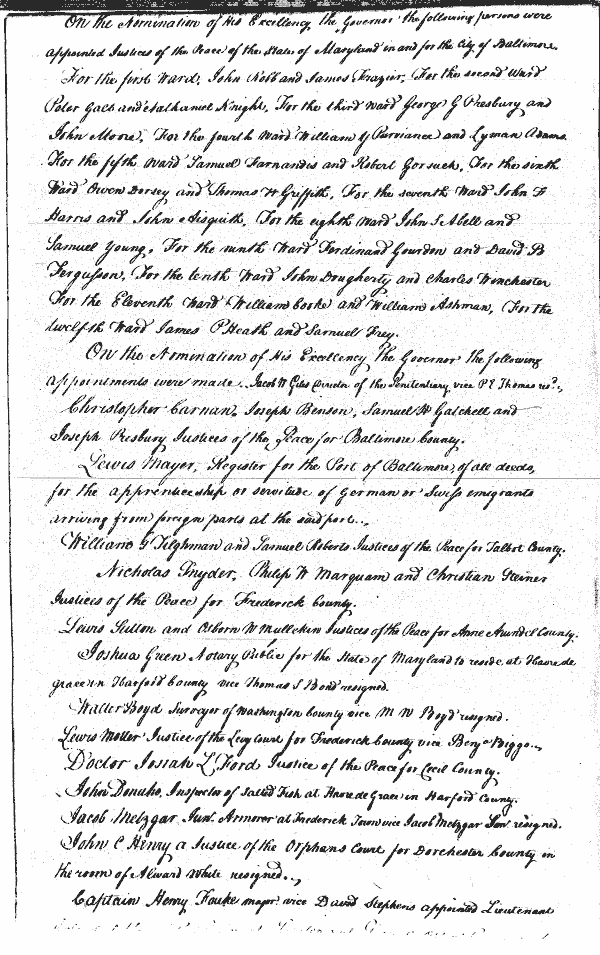 On the Nomination of His Excellency the Governor the following persons were
appointed Justices of the Peace of the State of Maryland in and for the City of Baltimore.
For the first Ward, John Robb and James Frazier, For the second Ward
Peter Galt and Nathaniel Knight, For the third Ward George G Presbury and
John Moore, For the fourth Ward William Y Purviance and Lyman Adams.
For the fifth Ward Samuel Farnandis and Robert Gorsuch, For the sixth
Ward Owen Dorsey and Thomas W Griffith, For the seventh Ward John F
Harris and John Aisquith, For the eighth Ward John S Abell and
Samuel Young, For the ninth Ward Ferdinand Gourdon and David B
Fergusson, For the tenth Ward John Dougherty and Charles Winchester
For the Eleventh Ward William Cooke and William Ashman, For the
twelfth Ward James P Heath and Samuel Frey.
On the Nomination of His Excellency the Governor the following
appointments were made. Jacob W Giles Director of the Penitentiary vice P E Thomas resd.,
Christopher Carnan, Joseph Benson, Samuel H Gatchell and
Joseph Presbury Justices of the Peace for Baltimore County.
Lewis Mayer, Register for the Port of Baltimore, of all deeds,
for the apprenticeship or servitude of German or Swiss emigrants
arriving from foreign parts at the said port.
William G Tilghman and Samuel Roberts Justices of the Peace for Talbot County.
Nicholas Snyder, Philip W Marquam and Christian Steiner
Justices of the Peace for Frederick County.
Lewis Sutton and Osborn W Mullekin Justices of the Peace for Anne Arundel County.
Joshua Green Notary Public for the State of Maryland to reside at Havre de
grace in Harford County vice Thomas S Bond resigned.
Walter Boyd Surveyor of Washington County vice M W Boyd resigned.
Lewis Motter Justice of the Levy Court for Frederick County vice Benja Biggs.
Doctor Josiah L Ford Justice of the Peace for Cecil County.
John Donuho, Inspector of Salted Fish at Havre de Grace in Harford County.
Jacob Metzgar Junr Armorer at Frederick Town vice Jacob Metzgar Senr resigned.
John C Henry a Justice of the Orphans Court for Dorchester County in
the room of Alward White resigned.
Captain Henry Fouke major vice David Stephens appointed Lieutenant